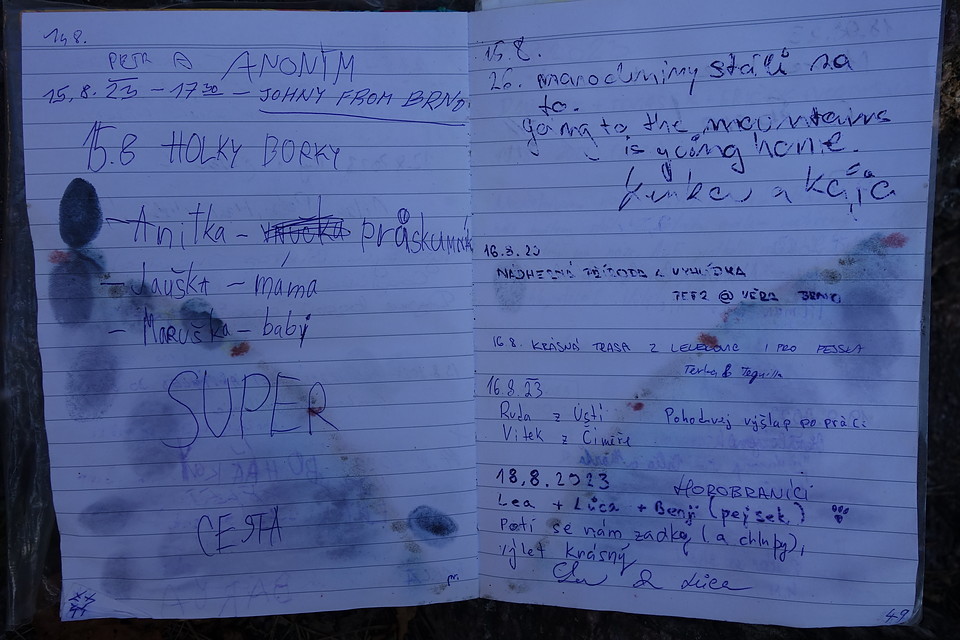 14.8.
PETR A ANONÝM
15.8.23 - 17³⁰ - JOHNY FROM BRNO
15.8 HOLKY BORKY
- Anitka - průskumník
- Jauška - máma
- Maruška - baby
SUPER
CESTA
15.8.
26. stálí za
to.
going to the mountains
is going home.
Lenka a Kája
16.8.23
NÁDHERNÁ PŘÍRODA A VYHLÍDKA
PETR @ VĚRA BRNO
16 8. KRÁSNÁ TRASA Z LELEKOVIC I PRO PEJSKA
Terka & Tequilla
16.8.23
Ruda z Ústí Pohodovej výšlap po práci
Vítek z
18.8.2023 HOROBRANÍCI
Lea + Lůca + Benji (pejsek)
Potí se nám zadky (a chlupy),
výlet krásný
Lea & Lůca
49